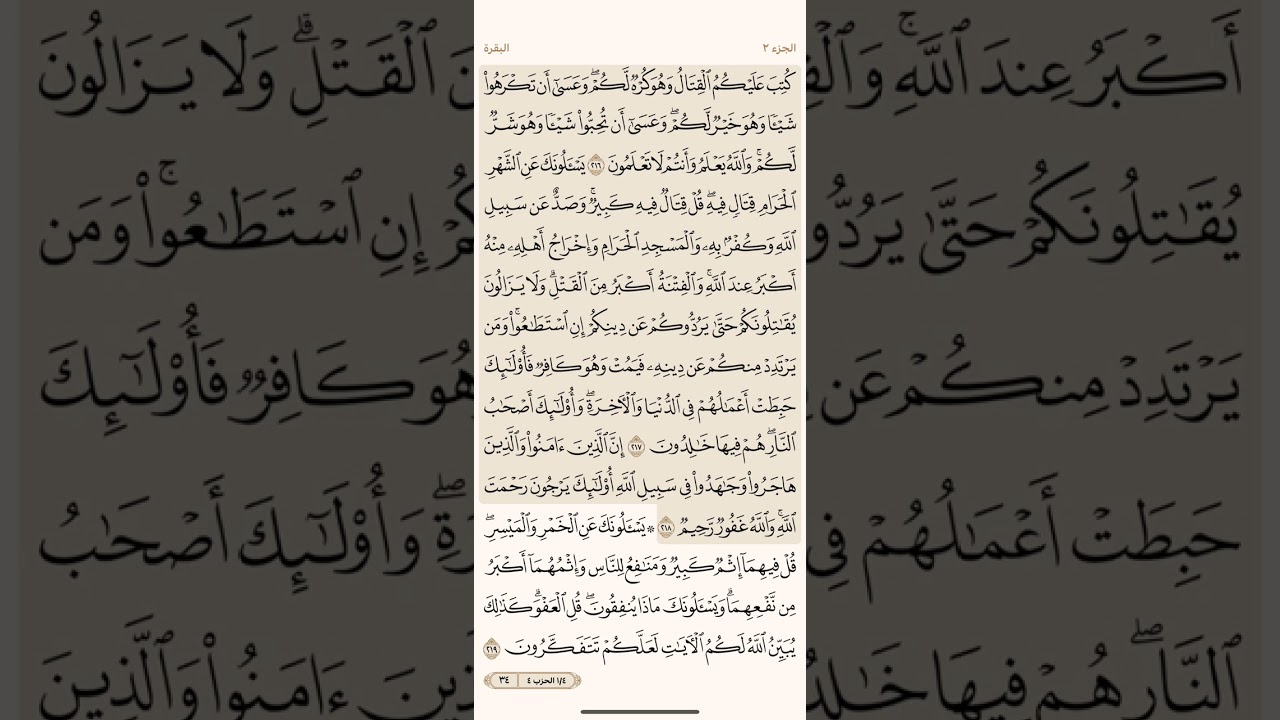 الجزء ٢
البقرة
كُتِبَ عَلَيۡكُمُ ٱلۡقِتَالُ وَهُوَ كُرۡهٞ لَّكُمۡۖ وَعَسَىٰٓ أَن تَكۡرَهُواْ
شَيۡـٔٗا وَهُوَ خَيۡرٞ لَّكُمۡۖ وَعَسَىٰٓ أَن تُحِبُّواْ شَيۡـٔٗا وَهُوَ شَرّٞ
لَّكُمۡۚ وَٱللَّهُ يَعۡلَمُ وَأَنتُمۡ لَا تَعۡلَمُونَ ٢١٦ يَسۡـَٔلُونَكَ عَنِ ٱلشَّهۡرِ
ٱلۡحَرَامِ قِتَالٖ فِيهِۖ قُلۡ قِتَالٞ فِيهِ كَبِيرٞۚ وَصَدٌّ عَن سَبِيلِ
ٱللَّهِ وَكُفۡرُۢ بِهِۦ وَٱلۡمَسۡجِدِ ٱلۡحَرَامِ وَإِخۡرَاجُ أَهۡلِهِۦ مِنۡهُ
أَكۡبَرُ عِندَ ٱللَّهِۚ وَٱلۡفِتۡنَةُ أَكۡبَرُ مِنَ ٱلۡقَتۡلِۗ وَلَا يَزَالُونَ
يُقَٰتِلُونَكُمۡ حَتَّىٰ يَرُدُّوكُمۡ عَن دِينِكُمۡ إِنِ ٱسۡتَطَٰعُواْۚ وَمَن
يَرۡتَدِدۡ مِنكُمۡ عَن دِينِهِۦ فَيَمُتۡ وَهُوَ كَافِرٞ فَأُوْلَٰٓئِكَ
حَبِطَتۡ أَعۡمَٰلُهُمۡ فِي ٱلدُّنۡيَا وَٱلۡأٓخِرَةِۖ وَأُوْلَٰٓئِكَ أَصۡحَٰبُ
ٱلنَّارِۖ هُمۡ فِيهَا خَٰلِدُونَ ٢١٧ إِنَّ ٱلَّذِينَ ءَامَنُواْ وَٱلَّذِينَ
هَاجَرُواْ وَجَٰهَدُواْ فِي سَبِيلِ ٱللَّهِ أُوْلَٰٓئِكَ يَرۡجُونَ رَحۡمَتَ
ٱللَّهِۚ وَٱللَّهُ غَفُورٞ رَّحِيمٞ ٢١٨ ۞ يَسۡـَٔلُونَكَ عَنِ ٱلۡخَمۡرِ وَٱلۡمَيۡسِرِۖ
قُلۡ فِيهِمَآ إِثۡمٞ كَبِيرٞ وَمَنَٰفِعُ لِلنَّاسِ وَإِثۡمُهُمَآ أَكۡبَرُ
مِن نَّفۡعِهِمَاۗ وَيَسۡـَٔلُونَكَ مَاذَا يُنفِقُونَۖ قُلِ ٱلۡعَفۡوَۗ كَذَٰلِكَ
يُبَيِّنُ ٱللَّهُ لَكُمُ ٱلۡأٓيَٰتِ لَعَلَّكُمۡ تَتَفَكَّرُونَ ٢١٩
١/٤ الحزب ٤
٣٤